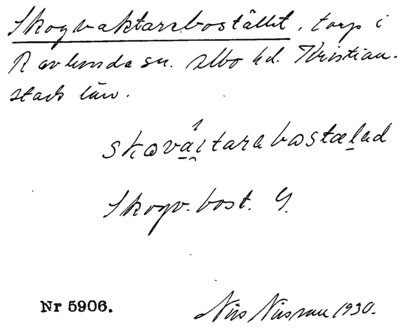 Skogvaktarebostället, torp i
Ravlunda sn. Albo hd. Kristian-
stads län.
skovaktarabostælad
Skogv. bost. G.
Nr 5906.
Nils Nilsson 1930.